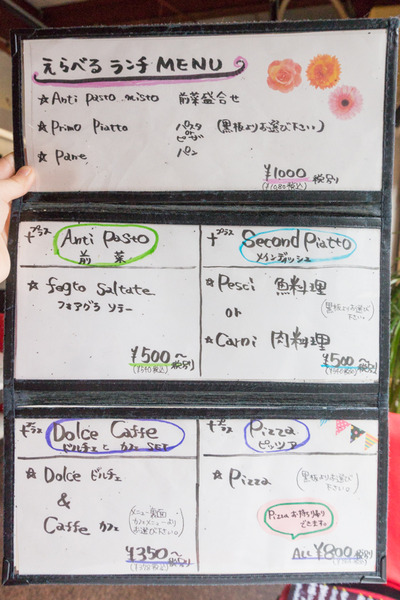 えらべる ランチ MENU
☆ Anti pasto misto 前菜盛合せ
☆ Primo Piatto パスタ or ピザ (黒板よりお選び下さい)
☆ Pane パン
¥1000 税別
(¥1080税込)
+プラス Anti Pasto
前菜
☆ fogto saltate
フォアグラ ソテー
¥500〜税別
(¥540税込)
+プラス Second Piatto
メインディッシュ
☆ Pesci 魚料理
or
(黒板よりお選び下さい。)
☆ Carni 肉料理
¥500〜税別
(¥540税込)
+プラス Dolce Caffe
ドルチェ と カフェ SET
☆ Dolce ドルチェ
&
Caffe カフェ
(メニュー裏面カフェメニューよりお選び下さい。)
¥350〜税別
+プラス Pizza
ピッツァ
☆ Pizza (黒板よりお選び下さい。)
Pizza お持ち帰り
できます。
ALL ¥800税別